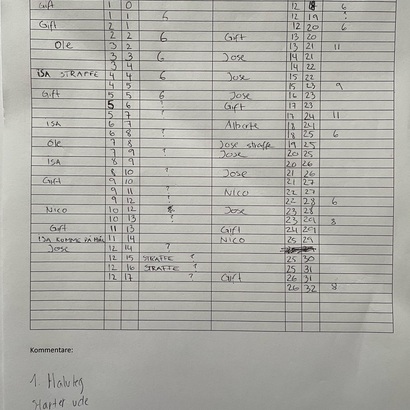 Gift 1 0 12 6
1 1 6 12 19 ?
Gift 2 1 12 20 6
2 2 6 Gift 13 20
Ole 3 2 13 21 11
3 3 6 Jose 14 21
3 4 14 22
ISA STRAFFE 4 4 6 Jose 15 22
4 5 15 23 9
Gift 5 5 6 Jose 16 23
5 6 ? Gift 17 23
5 7 17 24 11
ISA 6 7 Alberte 18 24
6 8 ? 18 25 6
Ole 7 8 Jose straffe 19 25
7 9 ? Jose 20 25
ISA 8 9 20 26
8 10 ? Jose 21 26
Gift 9 10 21 27
9 11 ? NICO 22 27
9 12 ? 22 28 6
NICO 10 12 Jose 23 28
10 13 ? 23 29 8
Gift 11 13 Gift 24 29
11 14 NICO 25 29
Jose 12 14 ?
12 15 STRAFFE ? 25 30
12 16 STRAFFE ? 25 31
12 17 ? Gift 26 31
26 32 8
Kommentare:
1. Halvleg
Starter ude